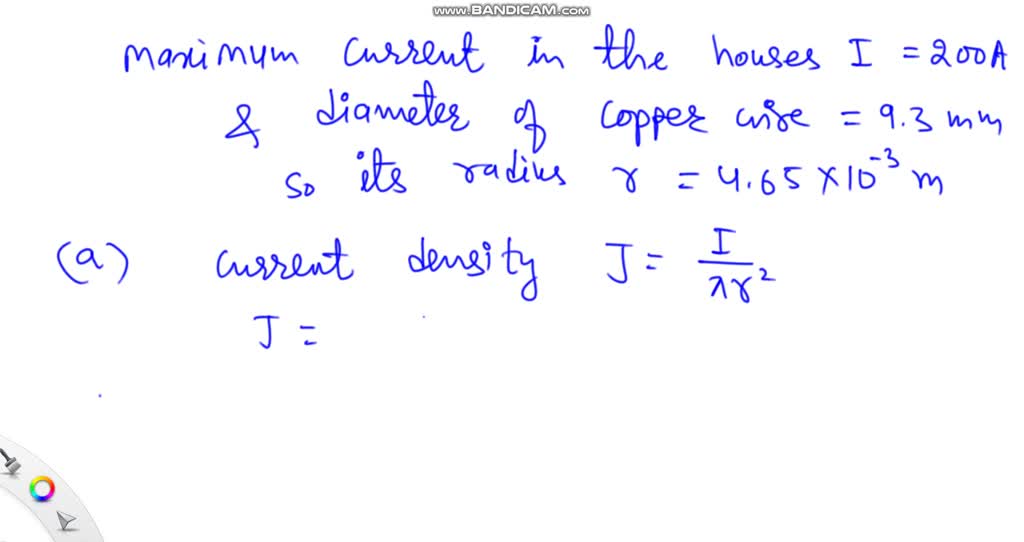 www.BANDICAM.com
maximum current in the houses I = 200A
& diameter of copper wire = 9.3 mm
so its radius r = 4.65 × 10⁻³ m
(a) current density J = I / πr²
J =